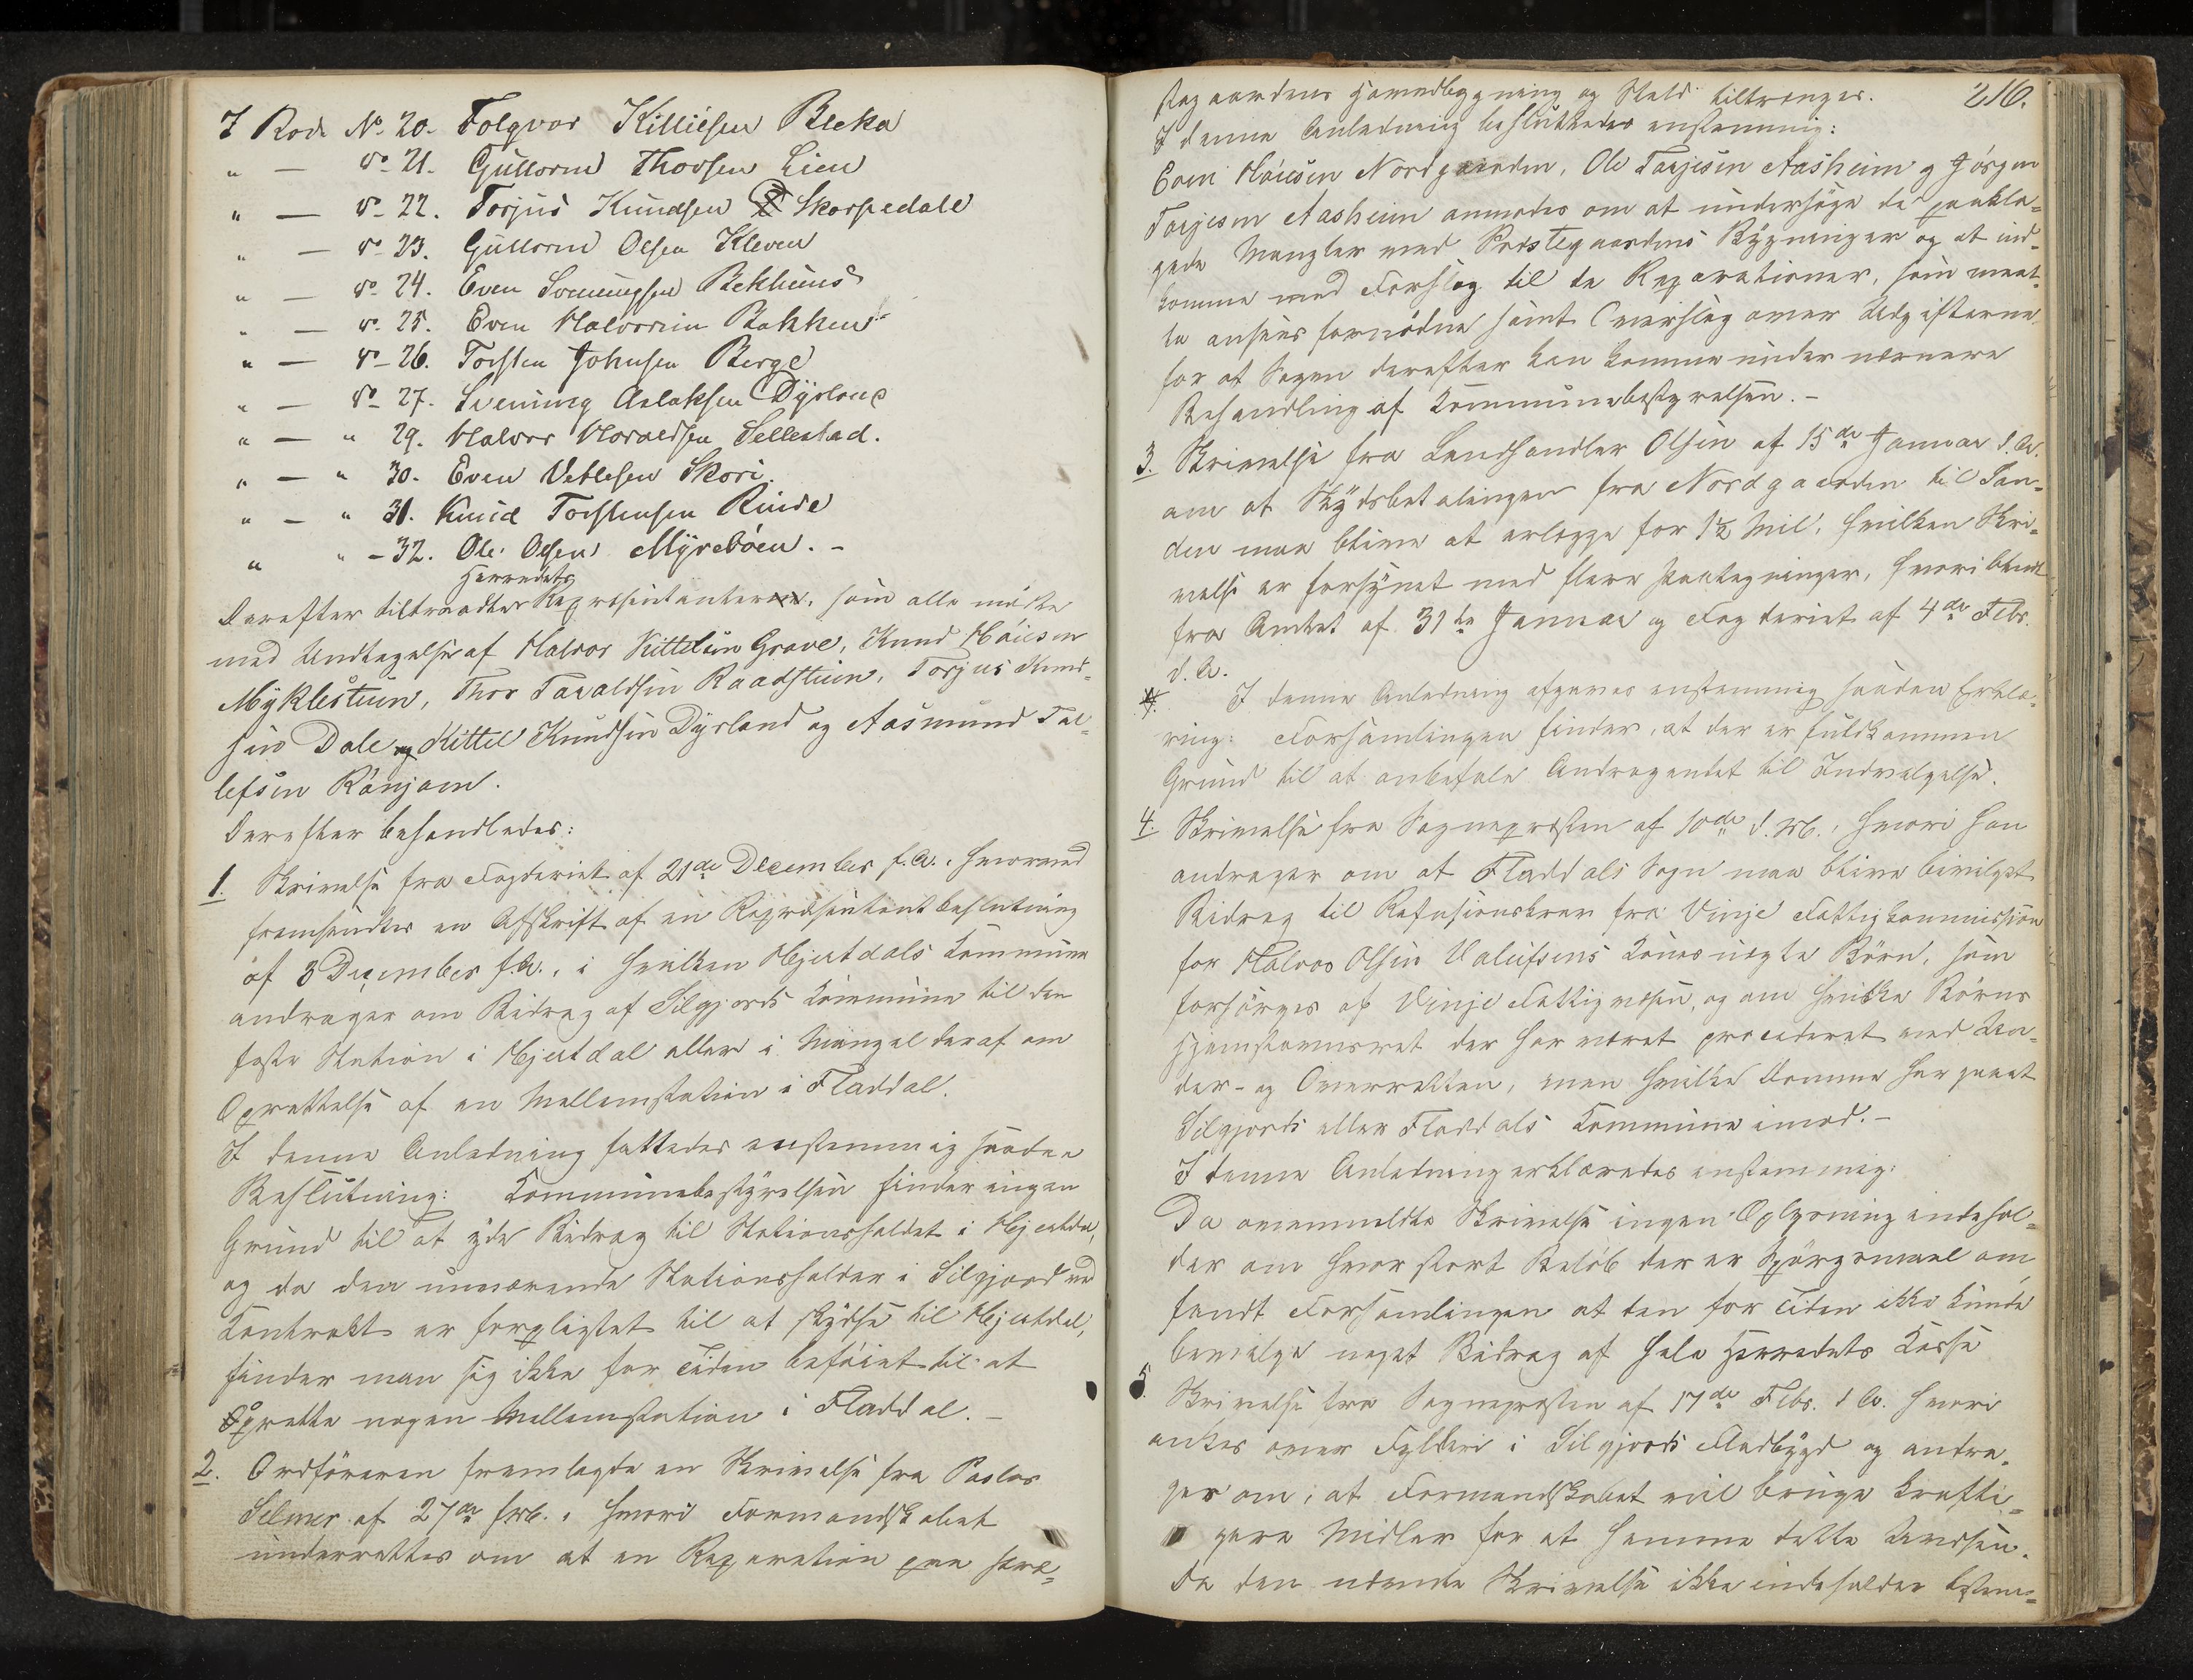 I Rode No 20. Folqvar Killiesen Bleka
" — do 21. Guttorm Thovsen Lien
" — do 22. Torjus Knudsen Skorpedale
" — do 23. Guttorm Olsen Kleven
" — do 24. Even Sveningsen Bekhuus
" — do 25. Even Halvorsen Bakken
" — do 26. Torsten Johnsen Berge
" — do 27. Svening Aslaksen Dyrland
" — " 29. Halvor Haraldsen Sellestad.
" — " 30. Even Vetlesen Skori.
" — " 31. Knud Torstensen Rinde
" " — 32. Ole Olsen Myrebøen. –
Herredets
Derefter tiltraadte Repræsentanterne, som alle mødte
med Undtagelse af Halvor Kittelsen Grave, Knud Høiesen
Myklestuen, Thor Taraldsen Raadstuen, Torjus Knud-
sen Dale og Kittel Knudsen Dyrland og Aasmund Tal-
lefsen Rønjom.
Derefter behandledes:
1. Skrivelse fra Fogderiet af 21de December f.A., hvormed
fremsendtes en Afskrift af en Repræsentantbeslutning
af 3 December f.A., i hvilken Hjertdals Kommune
andrager om Bidrag af Silgjords Kommune til den
faste Station i Hjertdal eller i Mangel deraf om
Oprettelse af en Mellemstation i Fladdal.
I denne Anledning fattedes enstemmig saadan
Beslutning: Kommunebestyrelsen finder ingen
Grund til at yde Bidrag til Stationsholdet i Hjertdal,
og da den nuværende Stationsholder i Silgjord ved
Kontrakt er forpligtet til at skydse til Hjertdal,
finder man sig ikke for Tiden beføiet til at
oprette nogen Mellemstation i Fladdal. –
2. Ordføreren fremlagde en Skrivelse fra Pastor
Selmer af 27de f.M., hvori Formandskabet
underrettes om at en Reparation paa Præ-
216.
stegaardens Hovedbygning og Stald tiltrænges.
I denne Anledning besluttedes enstemmig:
Even Høiesen Nordgaarden, Ole Tarjesen Aasheim og Jørgen
Tarjesen Aasheim anmodes om at undersøge de paakla-
gede Mangler med Præstegaardens Bygninger og at ind-
komme med Forslag til de Reparationer, som maat-
te ansees fornødne samt Overslag over Udgifterne
for at Sagen derefter kan komme under nærmere
Behandling af Kommunebestyrelsen. –
3. Skrivelse fra Landhandler Olsen af 15de Januar d.A.
om at Skydsbetalingen fra Nordgaarden til Tan-
den maa blive at erlægge for 1½ Mil, hvilken Skri-
velse er forsynet med flere Paategninger, hvoriblandt
fra Amtet af 31te Januar og Fogderiet af 4de Febr.
d.A.
I denne Anledning afgaves enstemmig saadan Erklæ-
ring: Forsamlingen finder, at der er fuldkommen
Grund til at anbefale Andragendet til Indvilgelse.
4. Skrivelse fra Sognepræsten af 10de d.M., hvori han
andrager om at Fladdals Sogn maa blive bevilget
Bidrag til Refusionskrav fra Vinje Fattigkommission
for Halvor Olsen Kones uægte Børn, som
forsørges af Vinje Fattigvæsen, og om hvilke Børns
Hjemstavnsret der har været procederet ved Un-
der- og Overretten, men hvilke Domme har gaaet
Silgjords eller Fladdals Kommune imod. –
I denne Anledning erklæredes enstemmig:
Da ovenmeldte Skrivelse ingen Oplysning indehol-
der om hvor stort Beløb der er Spørgsmaal om
fandt Forsamlingen at den for Tiden ikke kunde
bevilge noget Bidrag af hele Herredets Kasse
5. Skrivelse fra Sognepræsten af 17de Febr. d.A. hvori
ankes over Fylderi i Silgjords Fladbygd og andra-
ges om, at Formandskabet vil bruge krafti-
gere Midler for at hemme dette Uvæsen.
Da den nævnte Skrivelse ikke indeholder bestem-